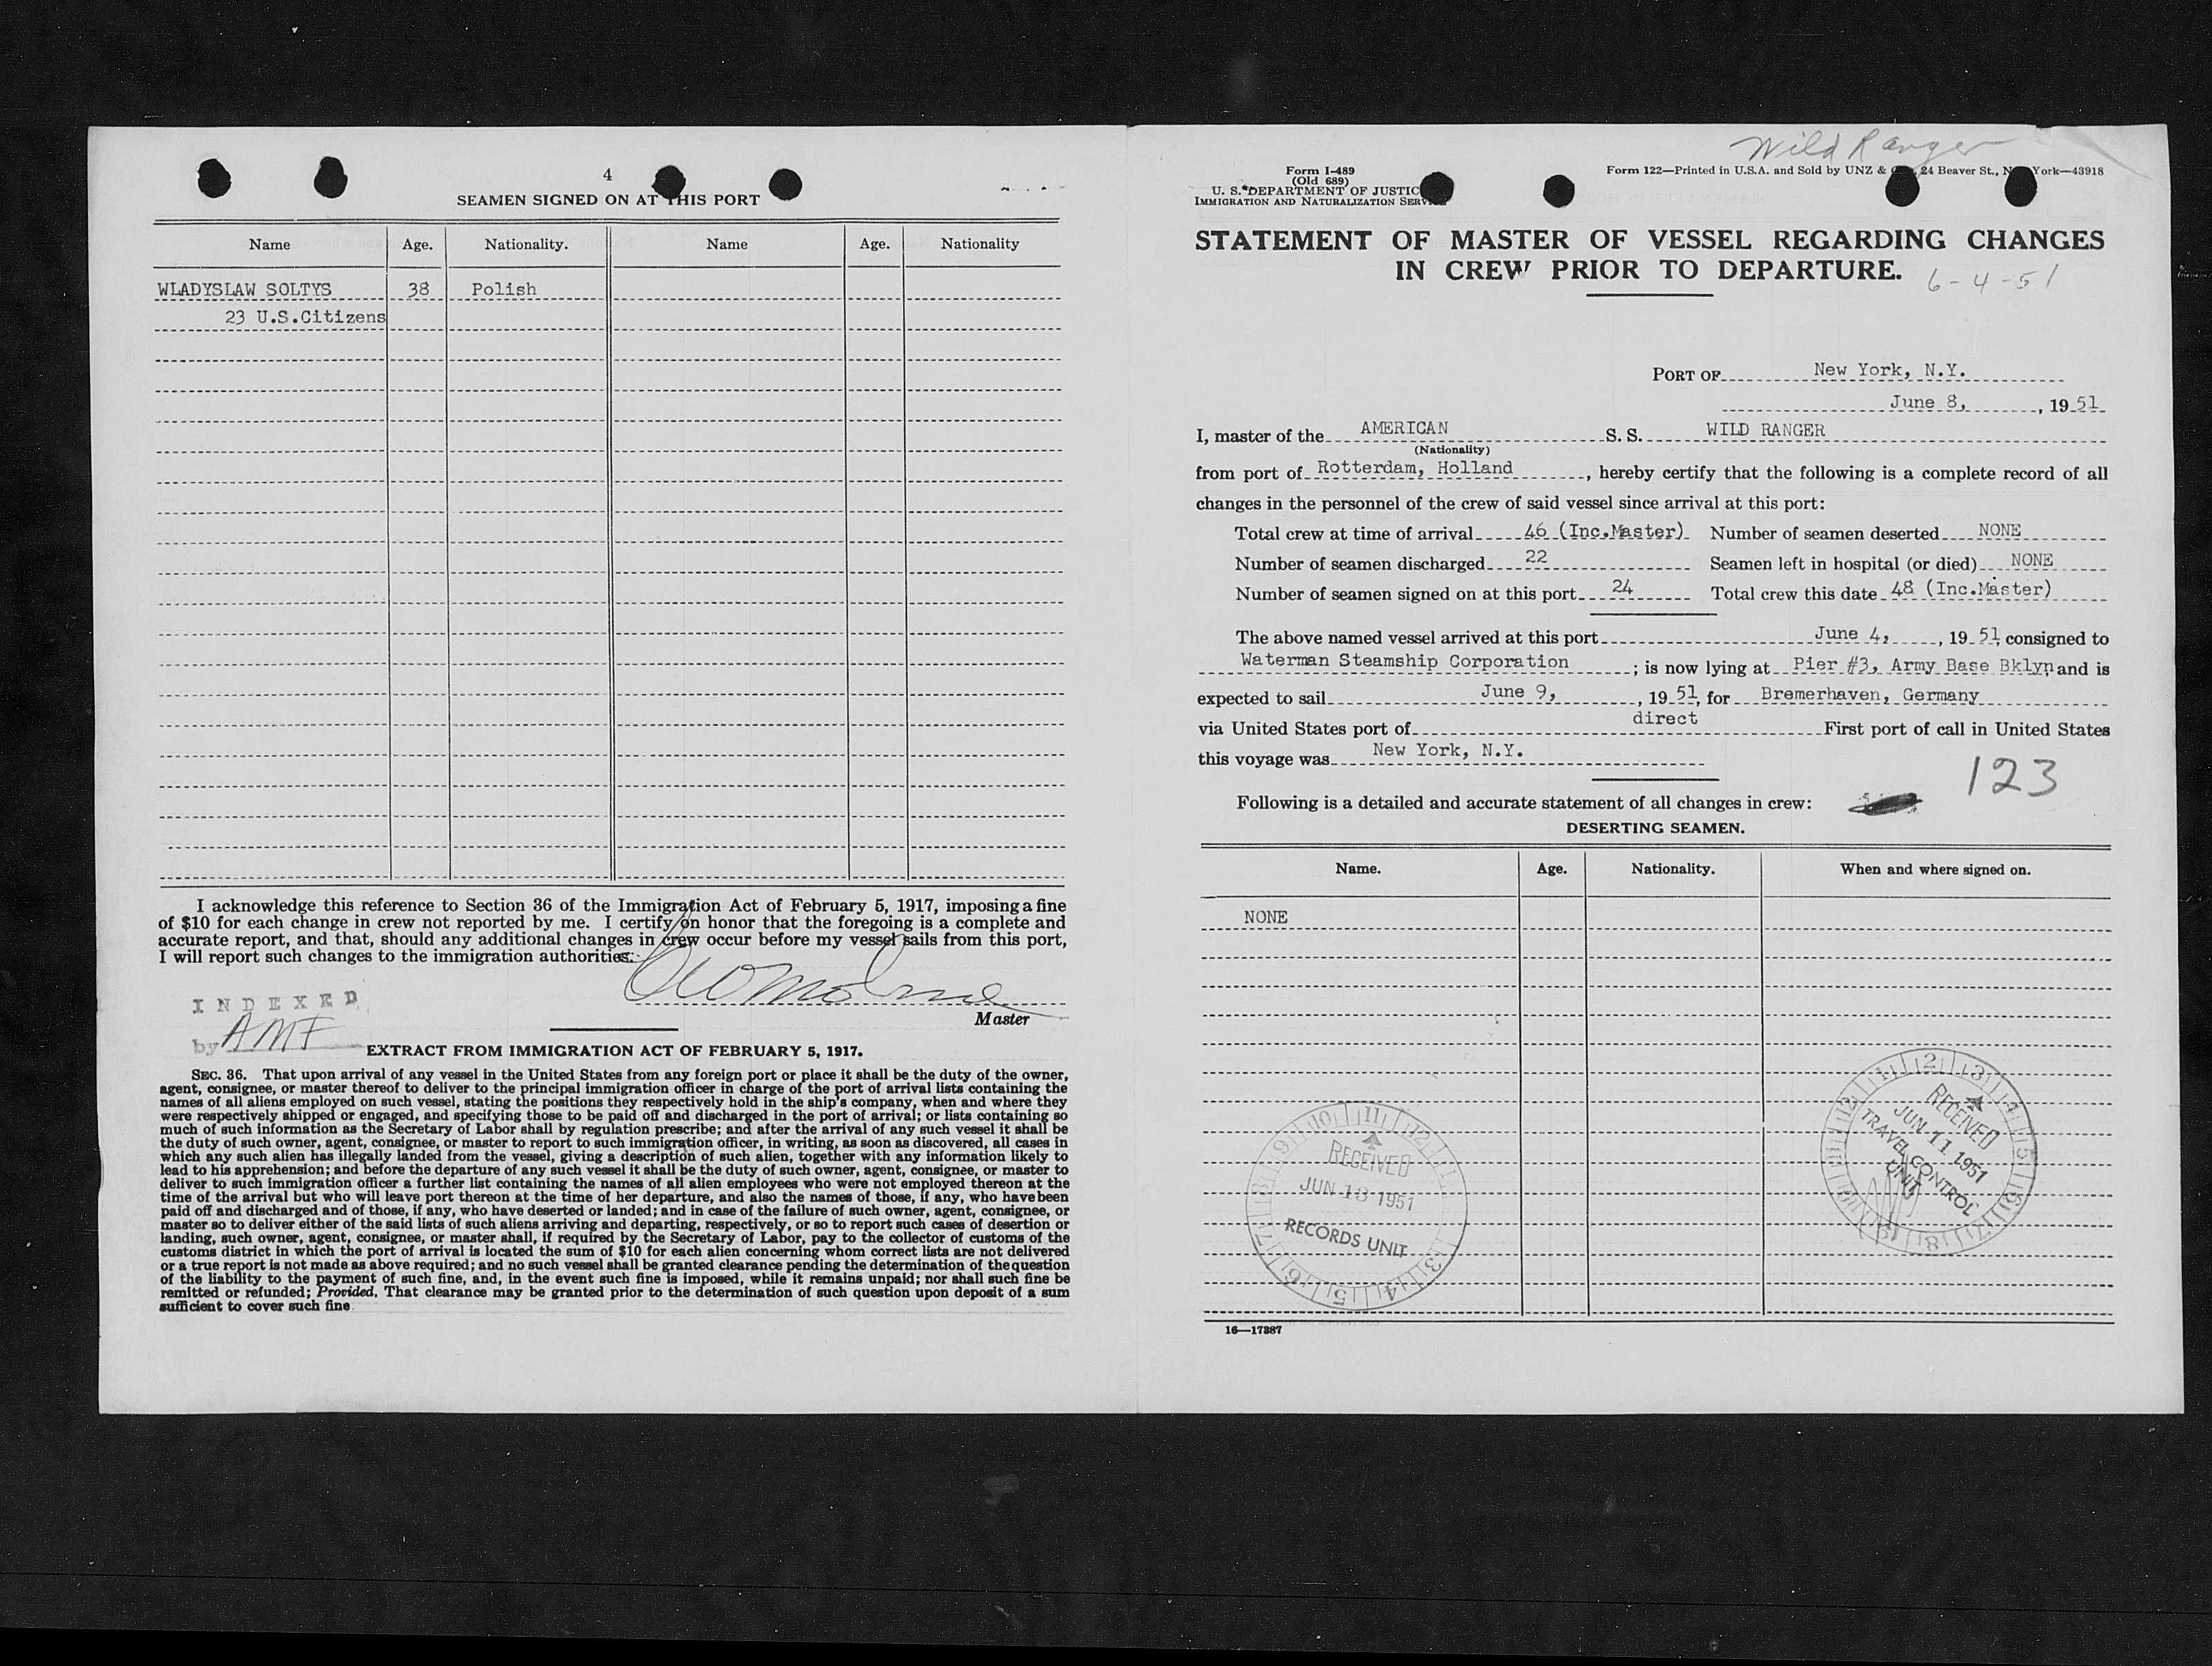 4
SEAMEN SIGNED ON AT THIS PORT
Name Age. Nationality. Name Age. Nationality
WLADYSLAW SOLTYS 38 Polish
23 U.S.Citizens
I acknowledge this reference to Section 36 of the Immigration Act of February 5, 1917, imposing a fine
of $10 for each change in crew not reported by me. I certify on honor that the foregoing is a complete and
accurate report, and that, should any additional changes in crew occur before my vessel sails from this port,
I will report such changes to the immigration authorities.
Master
INDEXED
by AMF
EXTRACT FROM IMMIGRATION ACT OF FEBRUARY 5, 1917.
SEC. 36. That upon arrival of any vessel in the United States from any foreign port or place it shall be the duty of the owner,
agent, consignee, or master thereof to deliver to the principal immigration officer in charge of the port of arrival lists containing the
names of all aliens employed on such vessel, stating the positions they respectively hold in the ship's company, when and where they
were respectively shipped or engaged, and specifying those to be paid off and discharged in the port of arrival; or lists containing so
much of such information as the Secretary of Labor shall by regulation prescribe; and after the arrival of any such vessel it shall be
the duty of such owner, agent, consignee, or master to report to such immigration officer, in writing, as soon as discovered, all cases in
which any such alien has illegally landed from the vessel, giving a description of such alien, together with any information likely to
lead to his apprehension; and before the departure of any such vessel it shall be the duty of such owner, agent, consignee, or master to
deliver to such immigration officer a further list containing the names of all alien employees who were not employed thereon at the
time of the arrival but who will leave port thereon at the time of her departure, and also the names of those, if any, who have been
paid off and discharged and of those, if any, who have deserted or landed; and in case of the failure of such owner, agent, consignee, or
master so to deliver either of the said lists of such aliens arriving and departing, respectively, or so to report such cases of desertion or
landing, such owner, agent, consignee, or master shall, if required by the Secretary of Labor, pay to the collector of customs of the
customs district in which the port of arrival is located the sum of $10 for each alien concerning whom correct lists are not delivered
or a true report is not made as above required; and no such vessel shall be granted clearance pending the determination of the question
of the liability to the payment of such fine, and, in the event such fine is imposed, while it remains unpaid; nor shall such fine be
remitted or refunded; Provided, That clearance may be granted prior to the determination of such question upon deposit of a sum
sufficient to cover such fine
Wild Ranger
Form I-489
(Old 689)
U. S. DEPARTMENT OF JUSTIC
IMMIGRATION AND NATURALIZATION SERV
Form 122—Printed in U.S.A. and Sold by UNZ & 24 Beaver St., N York—43918
STATEMENT OF MASTER OF VESSEL REGARDING CHANGES
IN CREW PRIOR TO DEPARTURE.
6-4-51
PORT OF New York, N.Y.
June 8, , 19 51
I, master of the AMERICAN S. S. WILD RANGER
(Nationality)
from port of Rotterdam, Holland , hereby certify that the following is a complete record of all
changes in the personnel of the crew of said vessel since arrival at this port:
Total crew at time of arrival 46 (Inc.Master) Number of seamen deserted NONE
Number of seamen discharged 22 Seamen left in hospital (or died) NONE
Number of seamen signed on at this port 24 Total crew this date 48 (Inc.Master)
The above named vessel arrived at this port June 4, , 19 51, consigned to
Waterman Steamship Corporation ; is now lying at Pier #3, Army Base Bklyn and is
expected to sail June 9, , 19 51, for Bremerhaven, Germany
via United States port of direct First port of call in United States
this voyage was New York, N.Y.
123
Following is a detailed and accurate statement of all changes in crew:
DESERTING SEAMEN.
Name. Age. Nationality. When and where signed on.
NONE
RECEIVED
JUN 11 1951
TRAVEL CONTROL
UNIT
RECEIVED
JUN 13 1951
RECORDS UNIT
16—17387